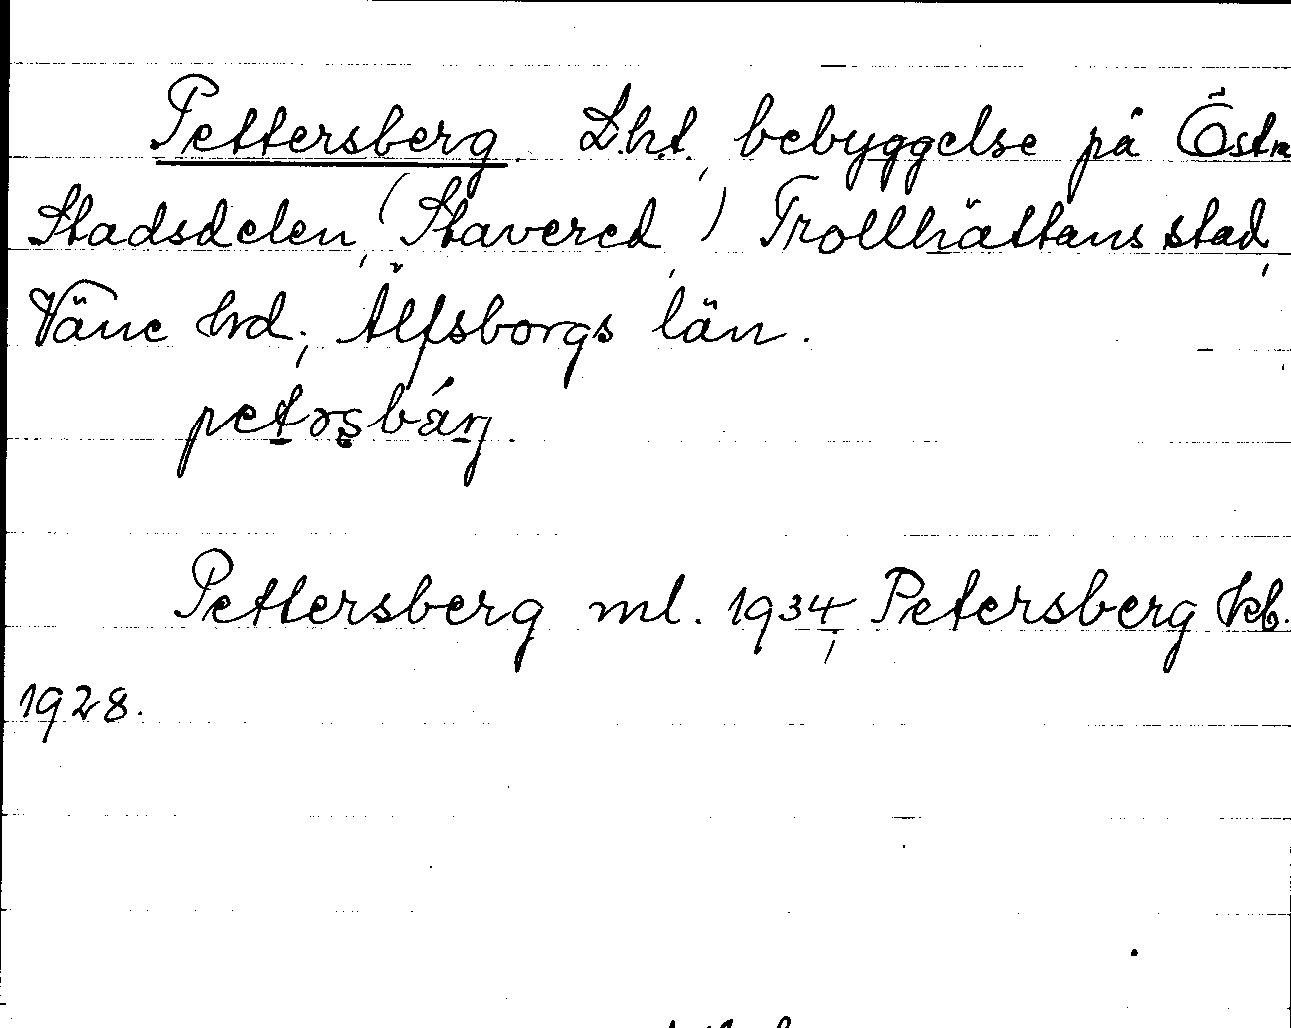 Pettersberg. Lht, bebyggelse på Östra
Stadsdelen, (Stavered,) Trollhättans stad,
Väne hrd, Älfsborgs län.
petərsbárj.
Pettersberg ml. 1934, Petersberg kb.
1928.